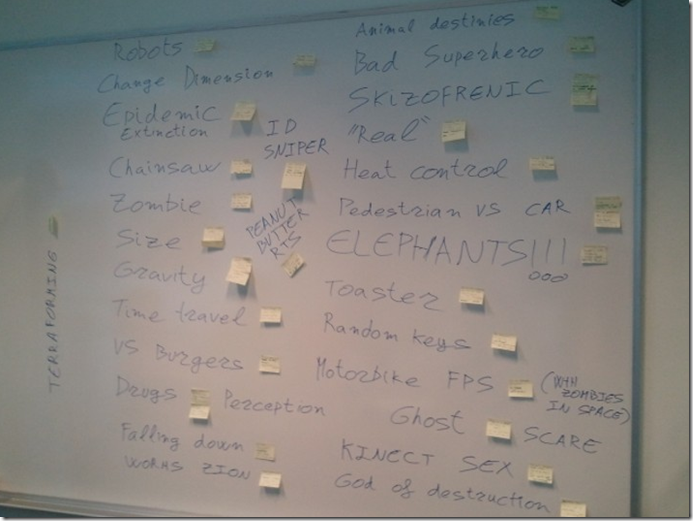 TERRAFORMING
Robots
Change Dimension
Epidemic
Extinction
Chainsaw
Zombie
Size
Gravity
Time travel
VS Burgers
Drugs Perception
Falling down
WORMS ZION
ID
SNIPER
PEANUT
BUTTER
RTS
Animal destinies
Bad Superhero
SKIZOFRENIC
"Real"
Heat control
Pedestrian VS CAR
ELEPHANTS!!!
Toaster
Random keys
Motorbike FPS
(WITH
ZOMBIES
IN SPACE)
Ghost SCARE
KINECT SEX
God of destruction